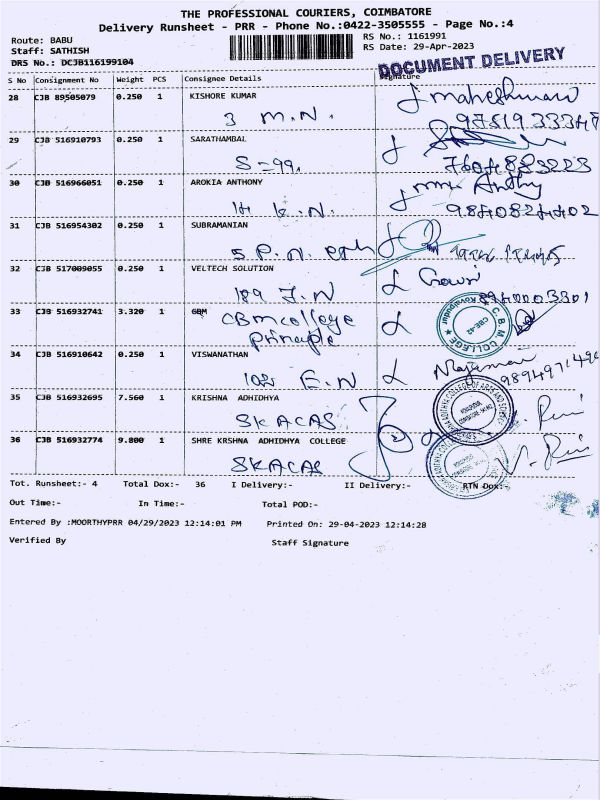 THE PROFESSIONAL COURIERS, COIMBATORE
Delivery Runsheet - PRR - Phone No.:0422-3505555 - Page No.:4
Route: BABU
RS No.: 1161991
Staff: SATHISH
RS Date: 29-Apr-2023
DRS No.: DCJB116199104
DOCUMENT DELIVERY
S No Consignment No Weight PCS Consignee Details Signature
28 CJB 89505079 0.250 1 KISHORE KUMAR
3 M.N.
29 CJB 516910793 0.250 1 SARATHAMBAL
S-99,
30 CJB 516966051 0.250 1 AROKIA ANTHONY
9840824402
31 CJB 516954302 0.250 1 SUBRAMANIAN
5 P.N.
32 CJB 517009055 0.250 1 VELTECH SOLUTION
189 J.N
33 CJB 516932741 3.320 1 GBM
CBM college
Principle
C.B.M. COLLEGE
Kovaipudur
CBE-42
34 CJB 516910642 0.250 1 VISWANATHAN
102 E.N
35 CJB 516932695 7.560 1 KRISHNA ADHIDHYA
SKACAS
36 CJB 516932774 9.800 1 SHRE KRSHNA ADHIDHYA COLLEGE
SKACAS
Tot. Runsheet:- 4 Total Dox:- 36 I Delivery:- II Delivery:- RTN Dox:-
Out Time:- In Time:- Total POD:-
Entered By :MOORTHYPRR 04/29/2023 12:14:01 PM Printed On: 29-04-2023 12:14:28
Verified By Staff Signature